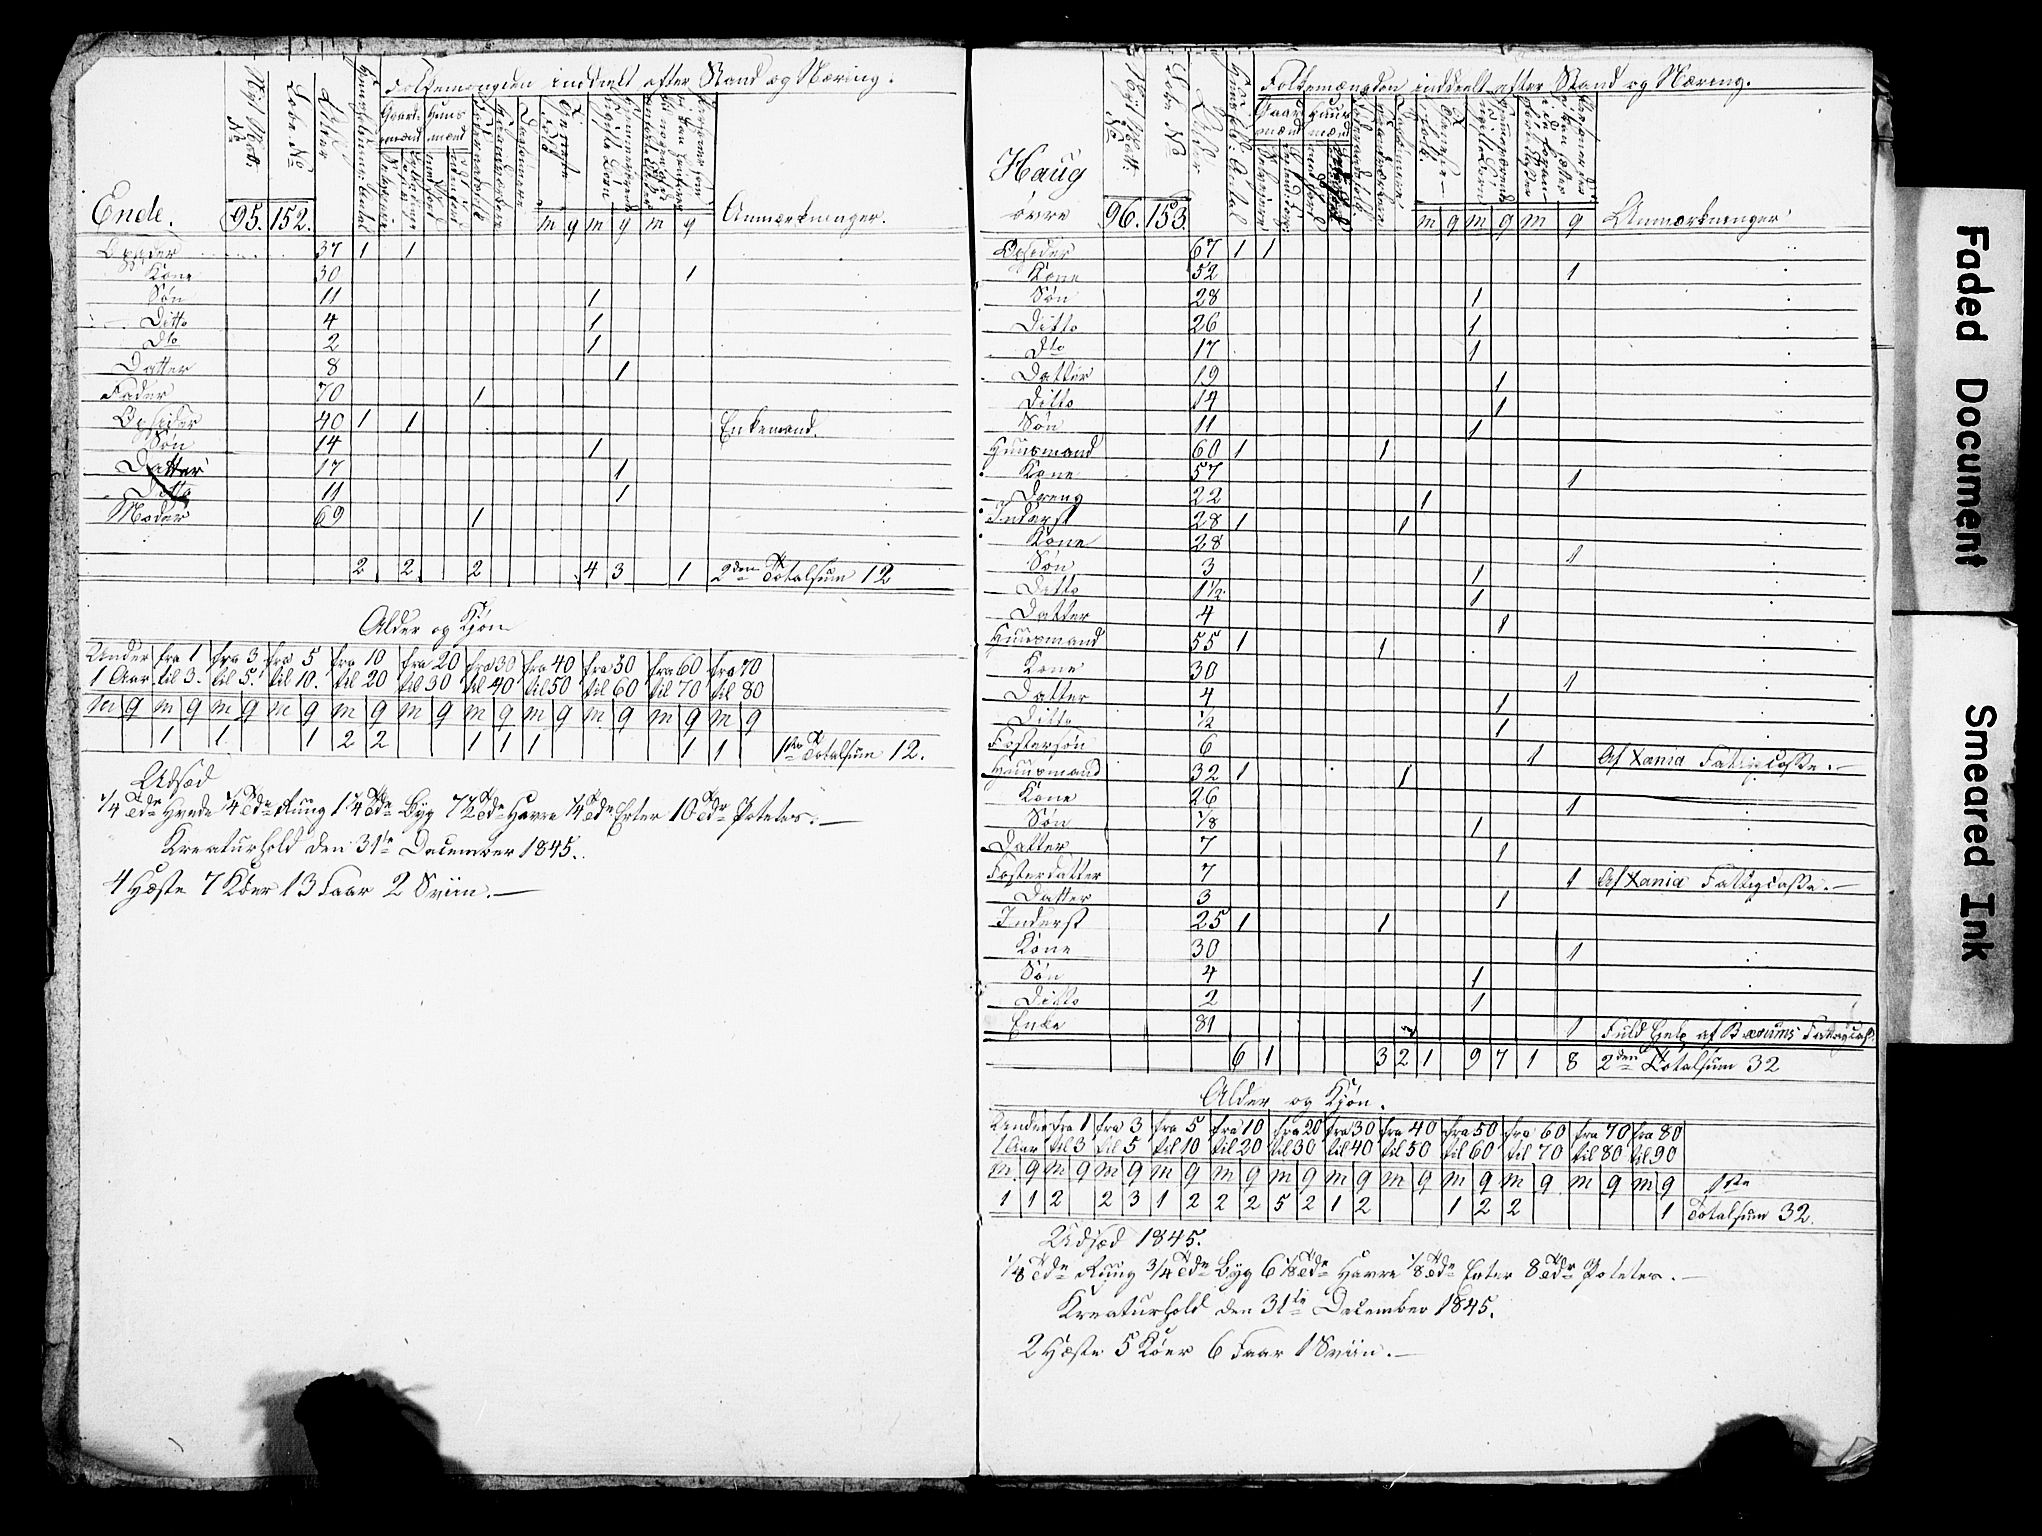 Folkemængden inddeelt efter Stand og Næring.
Nyt Matr. No
Løbe No
Alder
Gaardmænd
Huusmænd
Selveiere
Tjenestefolk
Ende. 95. 152. m q m q m q Anmærkninger.
Opsider 37 1 1
Kone 30 1
Søn 11 1
Ditto 4 1
Dto 2 1
Datter 8 1
Fader 70 1
Opsider 40 1 1 Enkemand.
Søn 14 1
Datter 17 1
Ditto 11 1
Moder 69 1
2 2 2 4 3 1 2den Totalsum 12
Alder og Kjøn
Under fra 1 fra 3 fra 5 fra 10 fra 20 fra 30 fra 40 fra 50 fra 60 fra 70
1 Aar til 3. til 5. til 10. til 20 til 30 til 40 til 50 til 60 til 70 til 80
m q m q m q m q m q m q m q m q m q m q m q
1 1 1 2 2 1 1 1 1 1 1ste Totalsum 12.
Udsæd
1/4 Tde Hvede 1/4 Tde Rung 1 1/4 Tde Byg 7 1/2 Tde Havre 1/4 Tde Erter 10 Tdr Poteter. —
Kreaturhold den 31te December 1845.
4 Heste 7 Køer 13 Faar 2 Sviin. —
Folkemængden inddeelt efter Stand og Næring.
Nyt Matr. No
Løbe No
Alder
Haug
øvre 96. 153. m q m q m q Anmærkninger
Opsider 67 1 1
Kone 52 1
Søn 28 1
Ditto 26 1
Dto 17 1
Datter 19 1
Ditto 14 1
Søn 11 1
Huusmand 60 1 1
Kone 57 1
Dreng 22 1
Inderst 28 1 1
Kone 28 1
Søn 3 1
Ditto 1 1/2 1
Datter 4 1
Huusmand 55 1 1
Kone 30 1
Datter 4 1
Ditto 1/2 1
Fostersøn 6 1 Af Xania Fattigcasse. —
Huusmand 32 1 1
Kone 26 1
Søn 1/8 1
Datter 7 1
Fosterdatter 7 1 Af Xania Fattigcasse. —
Datter 3 1
Inderst 25 1 1
Kone 30 1
Søn 4 1
Ditto 2 1
Enke 81 1 Fuld Hjelp af Bærums Fattigcas.
6 1 3 2 1 9 7 1 8 2den Totalsum 32
Alder og Kjøn.
Under fra 1 fra 3 fra 5 fra 10 fra 20 fra 30 fra 40 fra 50 fra 60 fra 70 fra 80
1 Aar til 3 til 5 til 10 til 20 til 30 til 40 til 50 til 60 til 70 til 80 til 90
m q m q m q m q m q m q m q m q m q m q m q m q 1ste
1 1 2 2 3 1 2 2 2 5 2 1 2 1 2 2 1 Totalsum 32.
Udsæd 1845.
1/8 Tde Rung 3/4 Tde Byg 6 1/8 Tde Havre 1/8 Tde Erter 8 Tdr Poteter. —
Kreaturhold den 31te December 1845.
2 Heste 5 Køer 6 Faar 1 Sviin. —
Faded Document
Smeared Ink